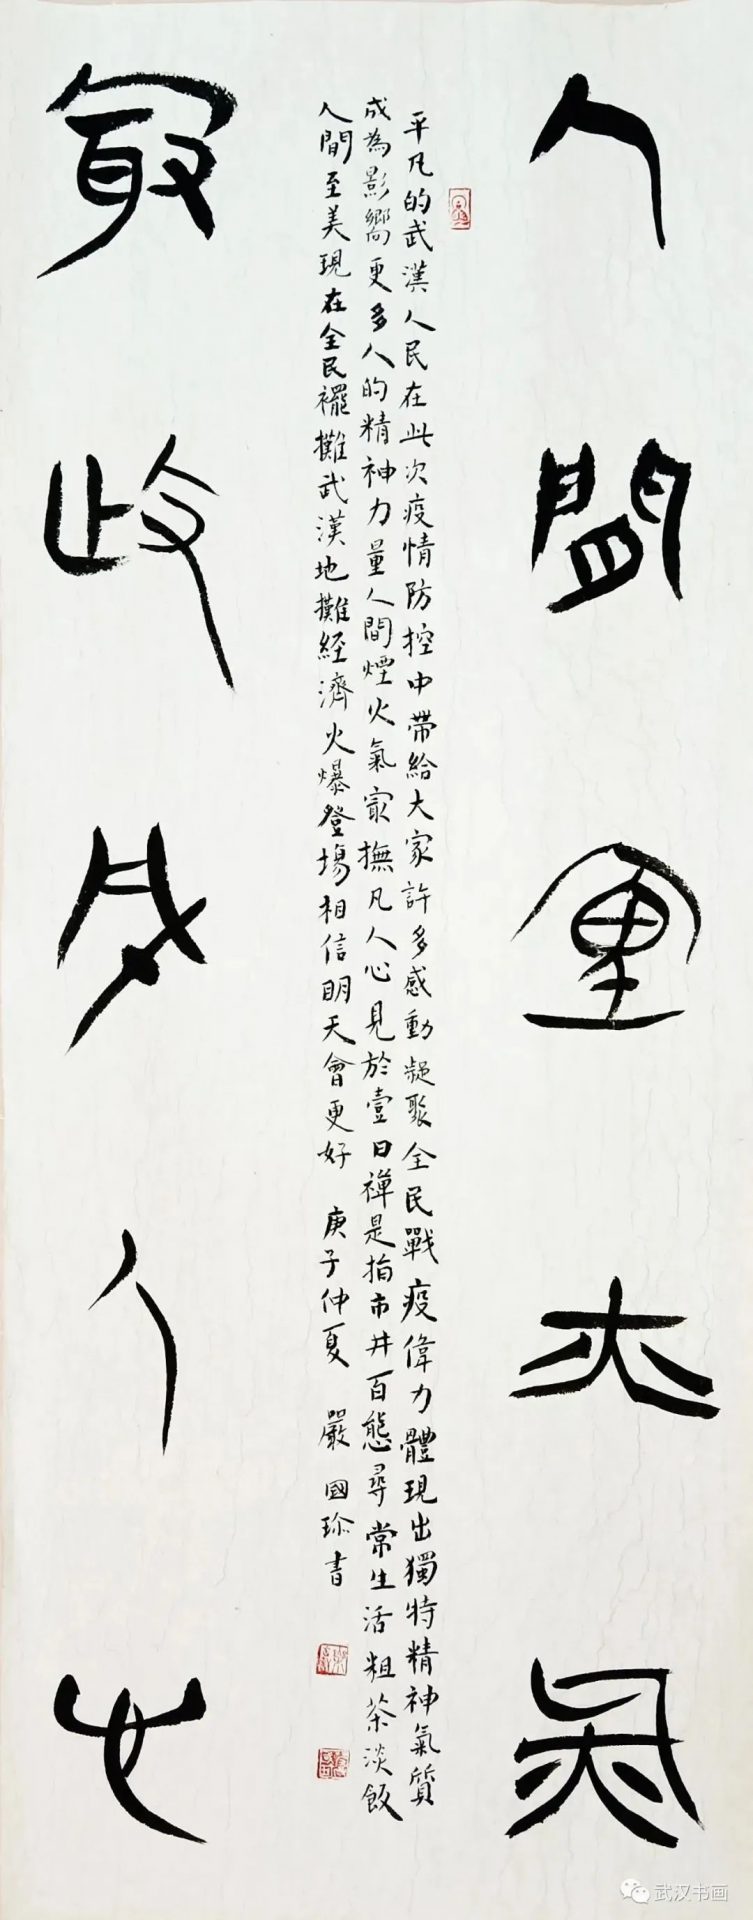 人間煙火氣
平凡的武漢人民在此次疫情防控中帶給大家許多感動凝聚全民戰疫偉力體現出獨特精神氣質
成為影嚮更多人的精神力量人間煙火氣冣撫凡人心見於壹日禅是指市井百態尋常生活粗茶淡飯
人間至美現在全民襬攤武漢地攤経濟火爆登場相信明天會更好 庚子仲夏 嚴國珎書
冣撫凡人心
武汉书画